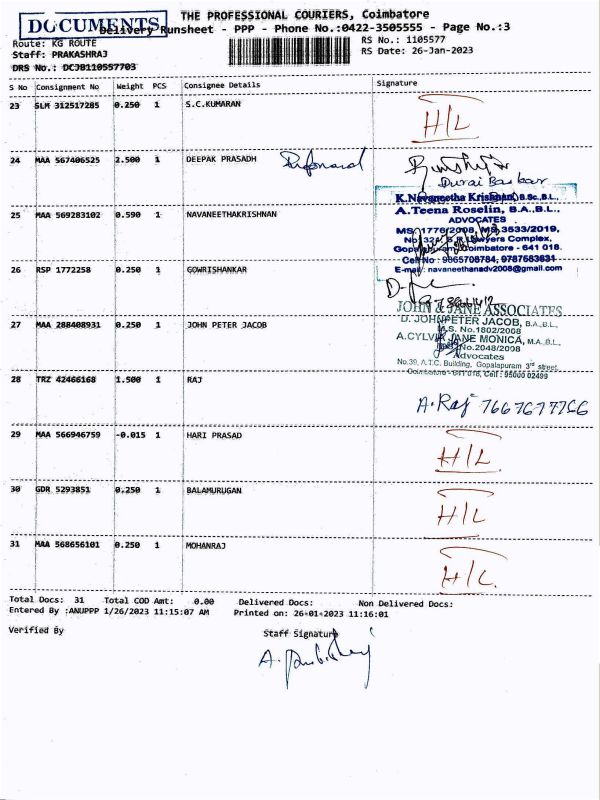 THE PROFESSIONAL COURIERS, Coimbatore
DOCUMENTS
Delivery Runsheet - PPP - Phone No.:0422-3505555 - Page No.:3
Route: KG ROUTE
RS No.: 1105577
Staff: PRAKASHRAJ
RS Date: 26-Jan-2023
DRS No.: DCJB110557703
S No Consignment No Weight PCS Consignee Details Signature
23 SLM 312517285 0.250 1 S.C.KUMARAN
H/L
24 MAA 567406525 2.500 1 DEEPAK PRASADH
Durai Baskar
K.Navaneetha Krishnan, B.Sc.,B.L.,
A.Teena Roselin, B.A.,B.L.,
ADVOCATES
25 MAA 569283102 0.590 1 NAVANEETHAKRISHNAN
MS.1776/2008, MS.3533/2019,
Lawyers Complex,
Coimbatore - 641 018.
Cell No : 9865708784, 9787583631
E-mail: navaneethanadv2008@gmail.com
26 RSP 1772258 0.250 1 GOWRISHANKAR
JOHN & JANE ASSOCIATES
D. JOHNPETER JACOB, B.A.,B.L.,
M.S. No.1802/2008
27 MAA 288408931 0.250 1 JOHN PETER JACOB
A.CYLVIA JANE MONICA, M.A.,B.L.,
M.S. No.2048/2008
Advocates
No.39, A.T.C. Building, Gopalapuram 3rd street,
Coimbatore - 641 018, Cell : 95000 02499
28 TRZ 42466168 1.500 1 RAJ
A. Raj 7667677766
29 MAA 566946759 -0.015 1 HARI PRASAD
H/L
30 GDR 5293851 0.250 1 BALAMURUGAN
H/L
31 MAA 568656101 0.250 1 MOHANRAJ
H/L
Total Docs: 31 Total COD Amt: 0.00 Delivered Docs: Non Delivered Docs:
Entered By :ANUPPP 1/26/2023 11:15:07 AM Printed on: 26-01-2023 11:16:01
Verified By
Staff Signature